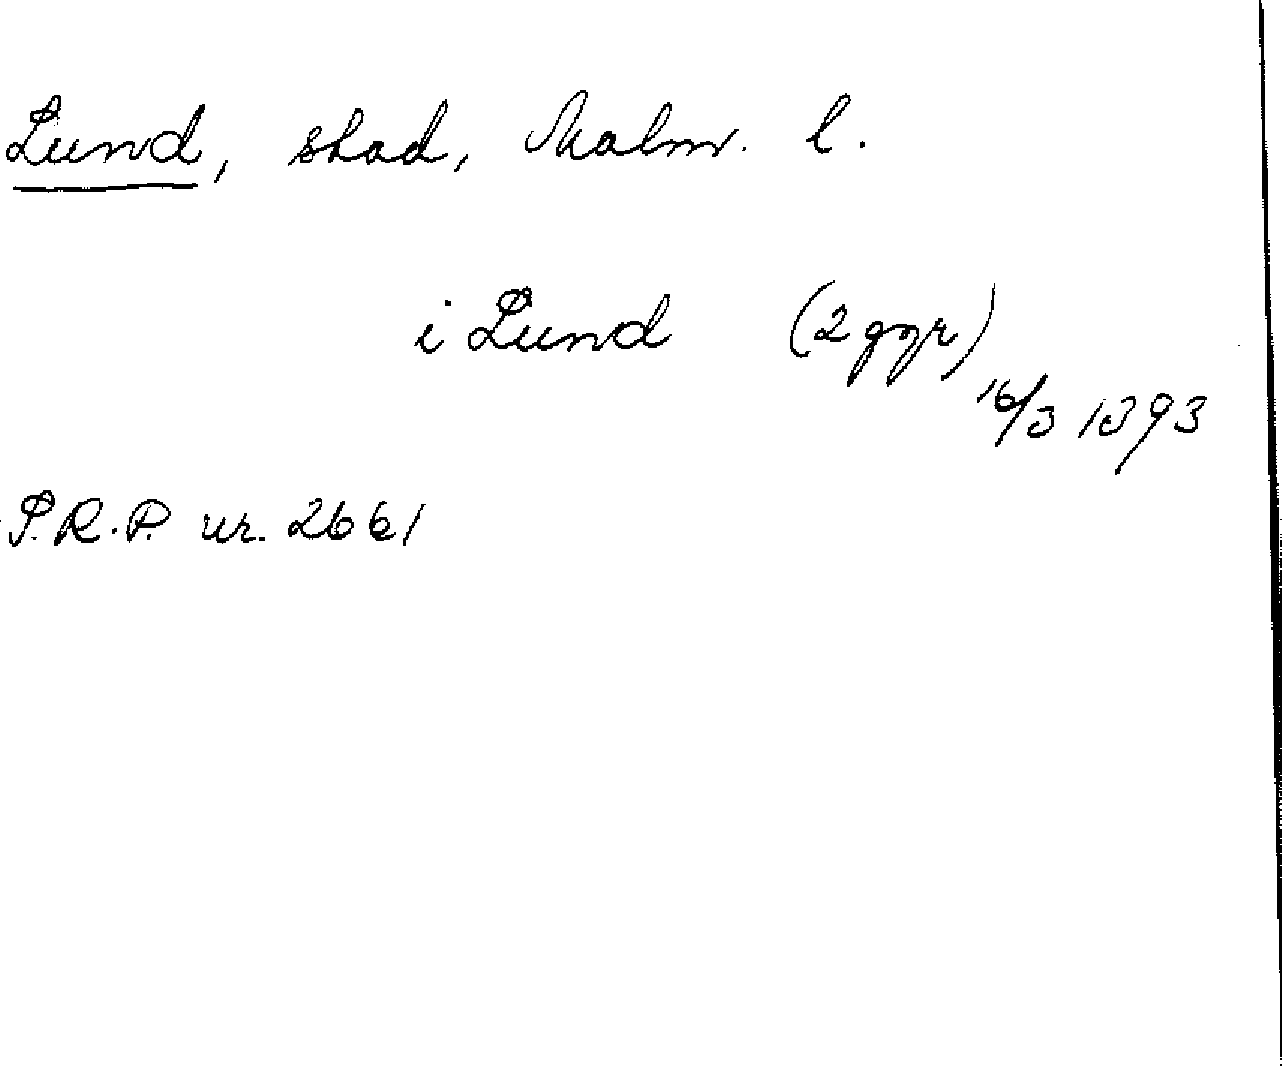 Lund, stad, Malm. l.
i Lund (2 ggr)
16/3 1393
S.R.P. nr. 2661